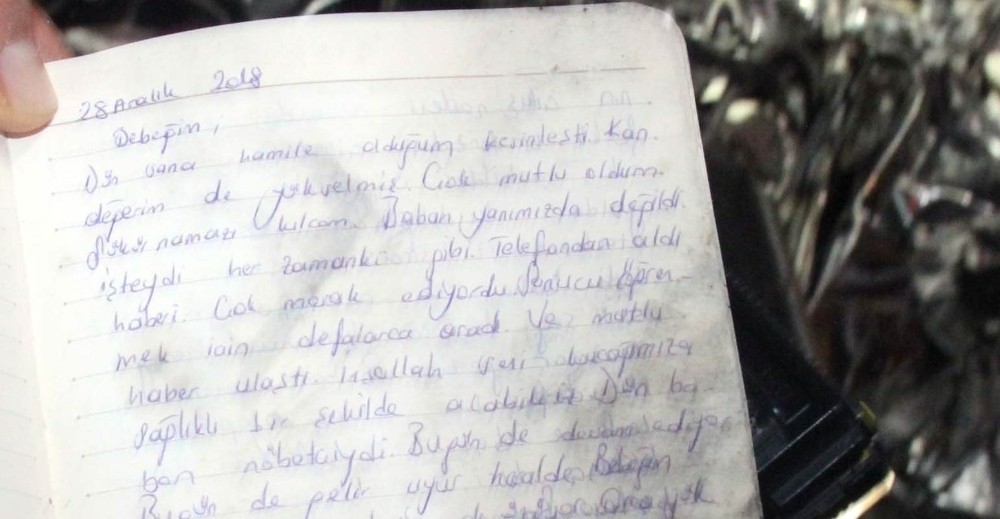 28 Aralık 2018
Bebeğim,
Dün sana hamile olduğum kesinleşti. Kan
değerim de yükselmiş. Çok mutlu oldum.
Şükür namazı kılcam. Baban yanımızda değildi.
işteydi her zamanki gibi. Telefondan aldı
haberi. Çok merak ediyordu. Sonucu öğren-
mek için defalarca aradı. Ve mutlu
haber ulaştı. İnşallah seni kucağımıza
sağlıklı bir şekilde alabiliriz. Dün ba-
ban nöbetçiydi. Bugün de devam ediyor
Bugün de gelir uyur heralde. Bebeğim